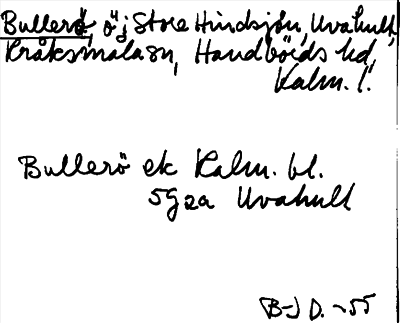 Bullerö, ö i Stora Hindsjön, Uvahult,
Kråksmåla sn, Handbörds hd,
Kalm. l.
Bullerö ek Kalm. bl.
5g2a Uvahult
B-J D. -55